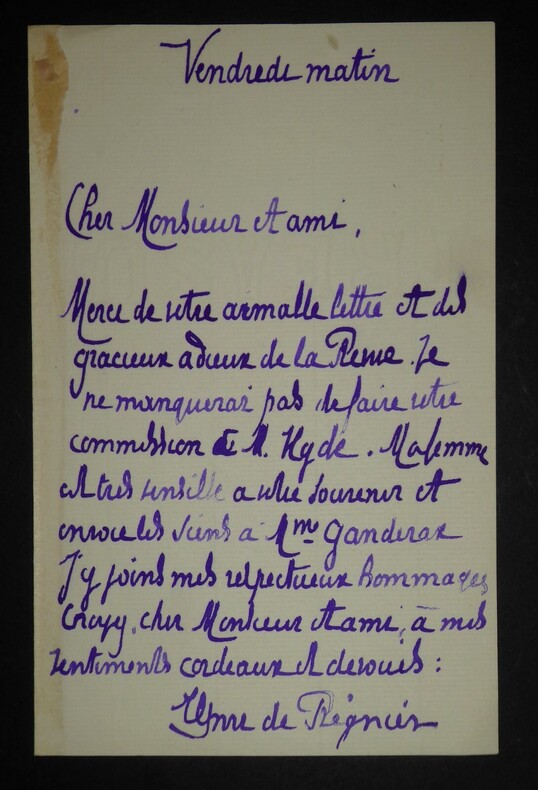 Vendredi matin
Cher Monsieur et ami,
Merci de votre aimable lettre et des
gracieux adieux de la Reine. Je
ne manquerai pas de faire votre
commission à M. Hyde. Ma femme
est très sensible à votre souvenir et
envoie les siens à Mme Ganderax
J'y joins mes respectueux hommages
Croyez, cher Monsieur et ami, à mes
sentiments cordiaux et dévoués :
Henri de Régnier